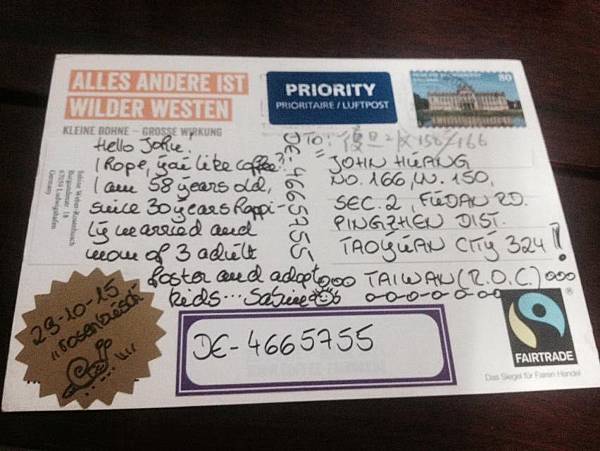 ALLES ANDERE IST
WILDER WESTEN
KLEINE BOHNE – GROSSE WIRKUNG
PRIORITY
PRIORITAIRE / LUFTPOST
80
Hello John!
I Hope, you like coffee?
I am 58 years old,
since 30 years happi-
ly married and
mom of 3 adult
foster and adopt
kids... Sabine
DE-4665755
TO:
JOHN HUANG
NO. 166, LN. 150,
SEC. 2, FUDAN RD.
PINGZHEN DIST.
TAOYUAN CITY 324
TAIWAN (R.O.C.)
Sabine Weber-Rosenbusch
67059 Ludwigshafen
Germany
29-10-15
"rosenbusch"
DE-4665755
FAIRTRADE
Das Siegel für Fairen Handel